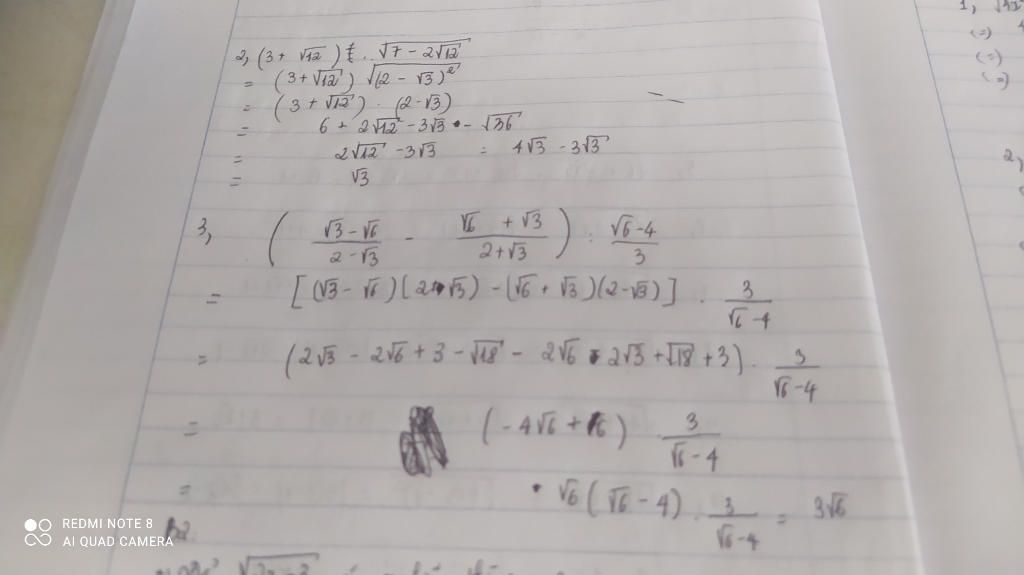 2, (3 + √12) . √(7 - 2√12)
= (3 + √12) √(2 - √3)²
= (3 + √12) . (2 - √3)
= 6 + 2√12 - 3√3 - √36
= 2√12 - 3√3 = 4√3 - 3√3
= √3
3, ( (√3 - √6)/(2 - √3) - (√6 + √3)/(2 + √3) ) : (√6 - 4)/3
= [(√3 - √6)(2 + √3) - (√6 + √3)(2 - √3)] . 3/(√6 - 4)
= (2√3 - 2√6 + 3 - √18 - 2√6 - 2√3 + √18 + 3) . 3/(√6 - 4)
= (-4√6 + 6) . 3/(√6 - 4)
= √6(√6 - 4) . 3/(√6 - 4) = 3√6
1,
(=)
(=)
(=)
2,
REDMI NOTE 8
AI QUAD CAMERA